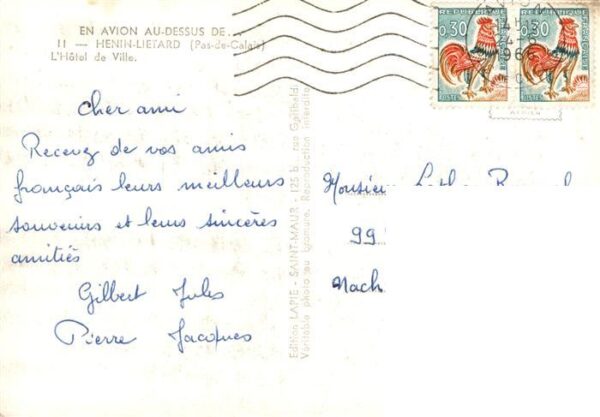 EN AVION AU-DESSUS DE...
11 — HENIN-LIETARD (Pas-de-Calais)
L'Hôtel de Ville.
cher ami
Recevez de vos amis
français leurs meilleurs
souvenirs et leurs sincères
amitiés
Gilbert Jules
Pierre Jacques
Edition LAPIE - SAINT-MAUR - 125 b rue
Véritable photo au bromure. Reproduction interdite
REPUBLIQUE
0,30
POSTES
REPUBLIQUE
0,30
POSTES
Monsieur
99
Nach